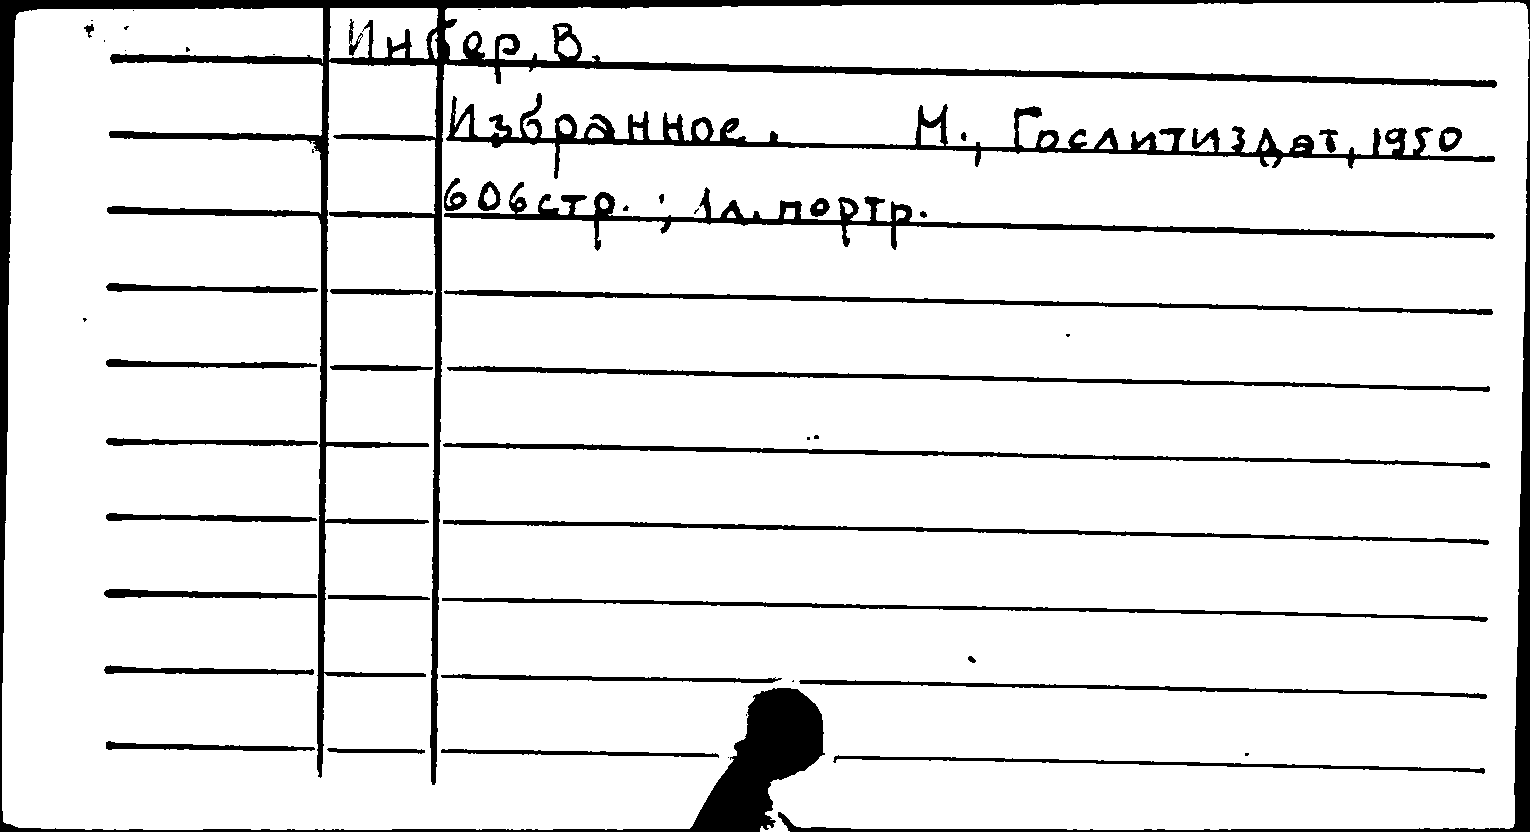 Инбер, В.
Избранное. М., Гослитиздат, 1950
606стр. ; 1л. портр.